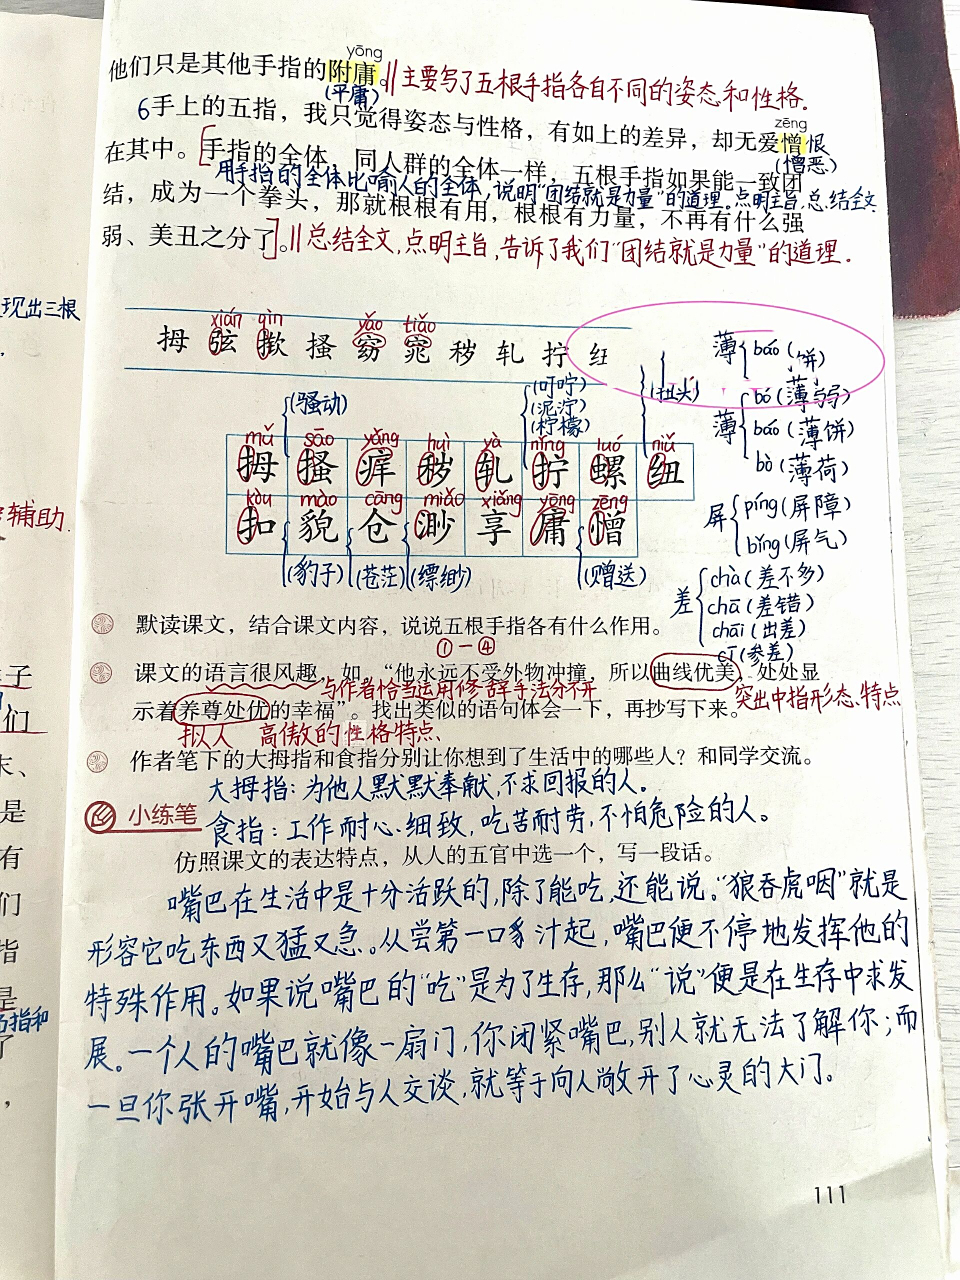 yōng
他们只是其他手指的附庸。‖主要写了五根手指各自不同的姿态和性格.
(平庸)
zēng
6手上的五指，我只觉得姿态与性格，有如上的差异，却无爱憎恨
(憎恶)
在其中。[手指的全体，同人群的全体一样，五根手指如果能一致团
用手指的全体比喻人的全体,说明"团结就是力量"的道理。点明主旨,总结全文.
结，成为一个拳头，那就根根有用，根根有力量，不再有什么强
弱、美丑之分了]。‖总结全文,点明主旨,告诉了我们"团结就是力量"的道理.
现出三根
xián qìn yáo tiǎo
拇 弦 揿 搔 窈 窕 秽 轧 拧 纽
薄 báo (饼)
(叮咛)
(泥泞)
(柠檬)
(扭头)
(骚动)
薄 bó (薄弱)
báo (薄饼)
bò (薄荷)
mǔ sāo yǎng huì yà nǐng luó niǔ
拇 搔 痒 秽 轧 拧 螺 纽
kòu mào cāng miǎo xiǎng yōng zēng
扣 貌 仓 渺 享 庸 憎
(豹子) (苍茫) (缥缈) (赠送)
屏 píng (屏障)
bǐng (屏气)
差 chà (差不多)
chā (差错)
chāi (出差)
cī (参差)
辅助.
默读课文，结合课文内容，说说五根手指各有什么作用。
①一④
课文的语言很风趣，如，“他永远不受外物冲撞，所以曲线优美，处处显
与作者恰当运用修辞手法分不开
示着养尊处优的幸福”。找出类似的语句体会一下，再抄写下来。
突出中指形态、特点
拟人 高傲的性格特点、
作者笔下的大拇指和食指分别让你想到了生活中的哪些人？和同学交流。
大拇指: 为他人默默奉献,不求回报的人。
小练笔
食指: 工作耐心、细致, 吃苦耐劳, 不怕危险的人。
仿照课文的表达特点，从人的五官中选一个，写一段话。
嘴巴在生活中是十分活跃的,除了能吃,还能说。"狼吞虎咽"就是
形容它吃东西又猛又急。从尝第一口乳汁起, 嘴巴便不停地发挥他的
特殊作用。如果说嘴巴的"吃"是为了生存,那么"说"便是在生存中求发
展。一个人的嘴巴就像一扇门,你闭紧嘴巴,别人就无法了解你;而
一旦你张开嘴,开始与人交谈,就等于向人敞开了心灵的大门。
111